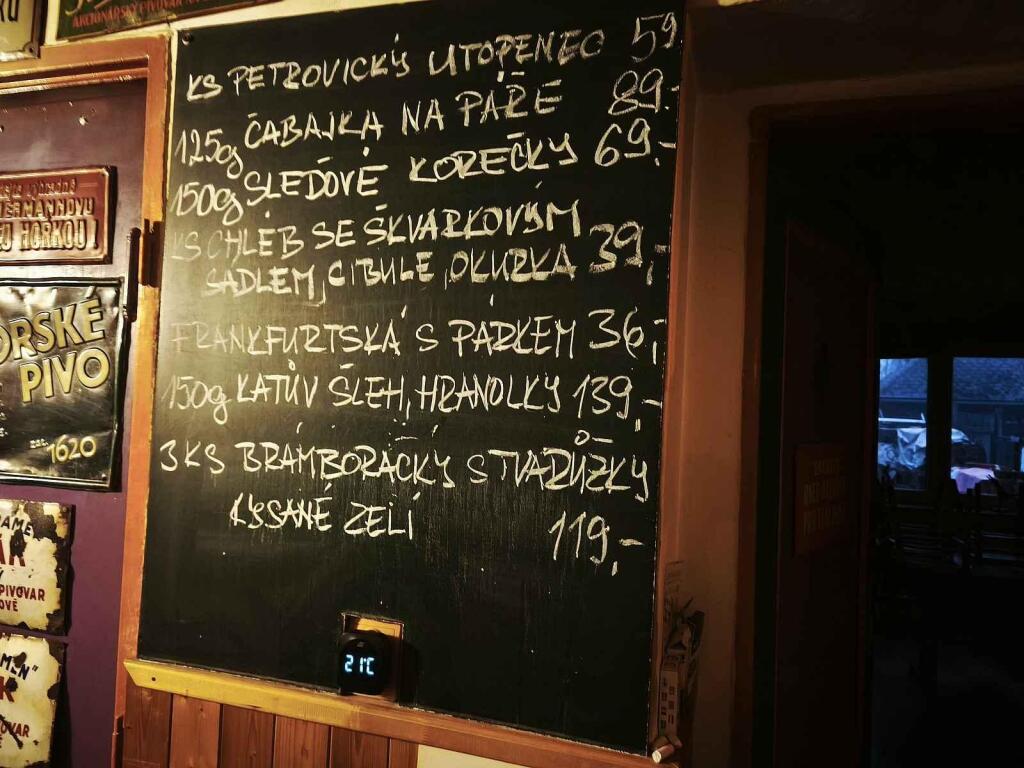 AKCIONÁŘSKÝ PIVOVAR
KS PETROVICKÝ UTOPENEC 59
125g ČABAJKA NA PÁŘE 89.-
150g SLEĎOVÉ KOREČKY 69.-
KS CHLÉB SE ŠKVARKOVÝM
SÁDLEM, CIBULE, OKURKA 39,-
FRANKFURTSKÁ S PÁRKEM 36,-
150g KATŮV ŠLEH, HRANOLKY 139,-
3KS BRAMBORÁČKY S TVARŮŽKY
KYSANÉ ZELÍ 119,-
21C
HOŘKOU!
ORSKÉ
PIVO
1620
PIVOVAR